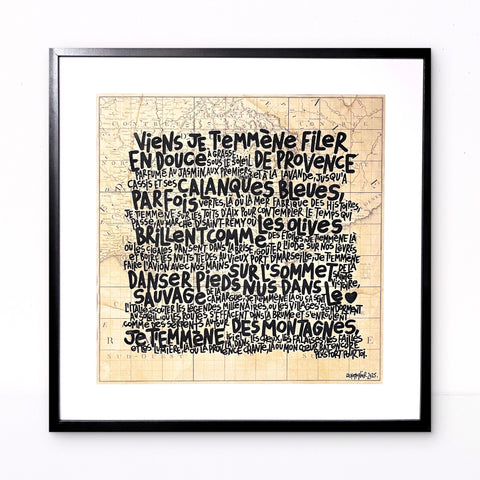 VIENS JE T'EMMÈNE FILER
EN DOUCE À GRASSE, SOUS LE SOLEIL DE PROVENCE
PARFUMÉ AU JASMIN, AUX PREMIERS ET À LA LAVANDE, JUSQU'À
CASSIS ET SES CALANQUES BLEUES,
PARFOIS VERTES, LÀ OÙ LA MER FABRIQUE DES HISTOIRES,
JE T'EMMÈNE SUR LES TOITS D'AIX POUR CONTEMPLER LE TEMPS QUI
PASSE, AU MARCHÉ D' SAINT-RÉMY OÙ LES OLIVES
BRILLENT COMME DES ÉTOILES, JE T'EMMÈNE LÀ
OÙ LES CIGALES DANSENT DANS LA BRISE, GOÛTER L'IODE SUR NOS LÈVRES
ET BOIRE LES NUITS TIÈDES AU VIEUX PORT D'MARSEILLE, JE T'EMMÈNE
FAIRE L'AVION AVEC NOS MAINS SUR L'SOMMET DE LA SAINTE VICTOIRE,
DANSER PIEDS NUS DANS LE
SAUVAGE DE LA CAMARGUE, JE T'EMMÈNE LÀ OÙ ÇA SENT
L'ITALIE, ÉCOUTER LES LÉGENDES MILLÉNAIRES, OÙ LES VILLAGES S'ENDORMENT
AU SOLEIL, OÙ LES ROUTES S'EFFACENT DANS LA BRUME ET S'ENROULENT
COMME DES SERPENTS AUTOUR DES MONTAGNES,
JE T'EMMÈNE LES FALAISES, LES FAILLES
ET LES LUMIÈRES, LÀ OÙ LA PROVENCE CHANTE, LÀ OÙ MON CŒUR BAT ENCORE
PLUS FORT POUR TOI.